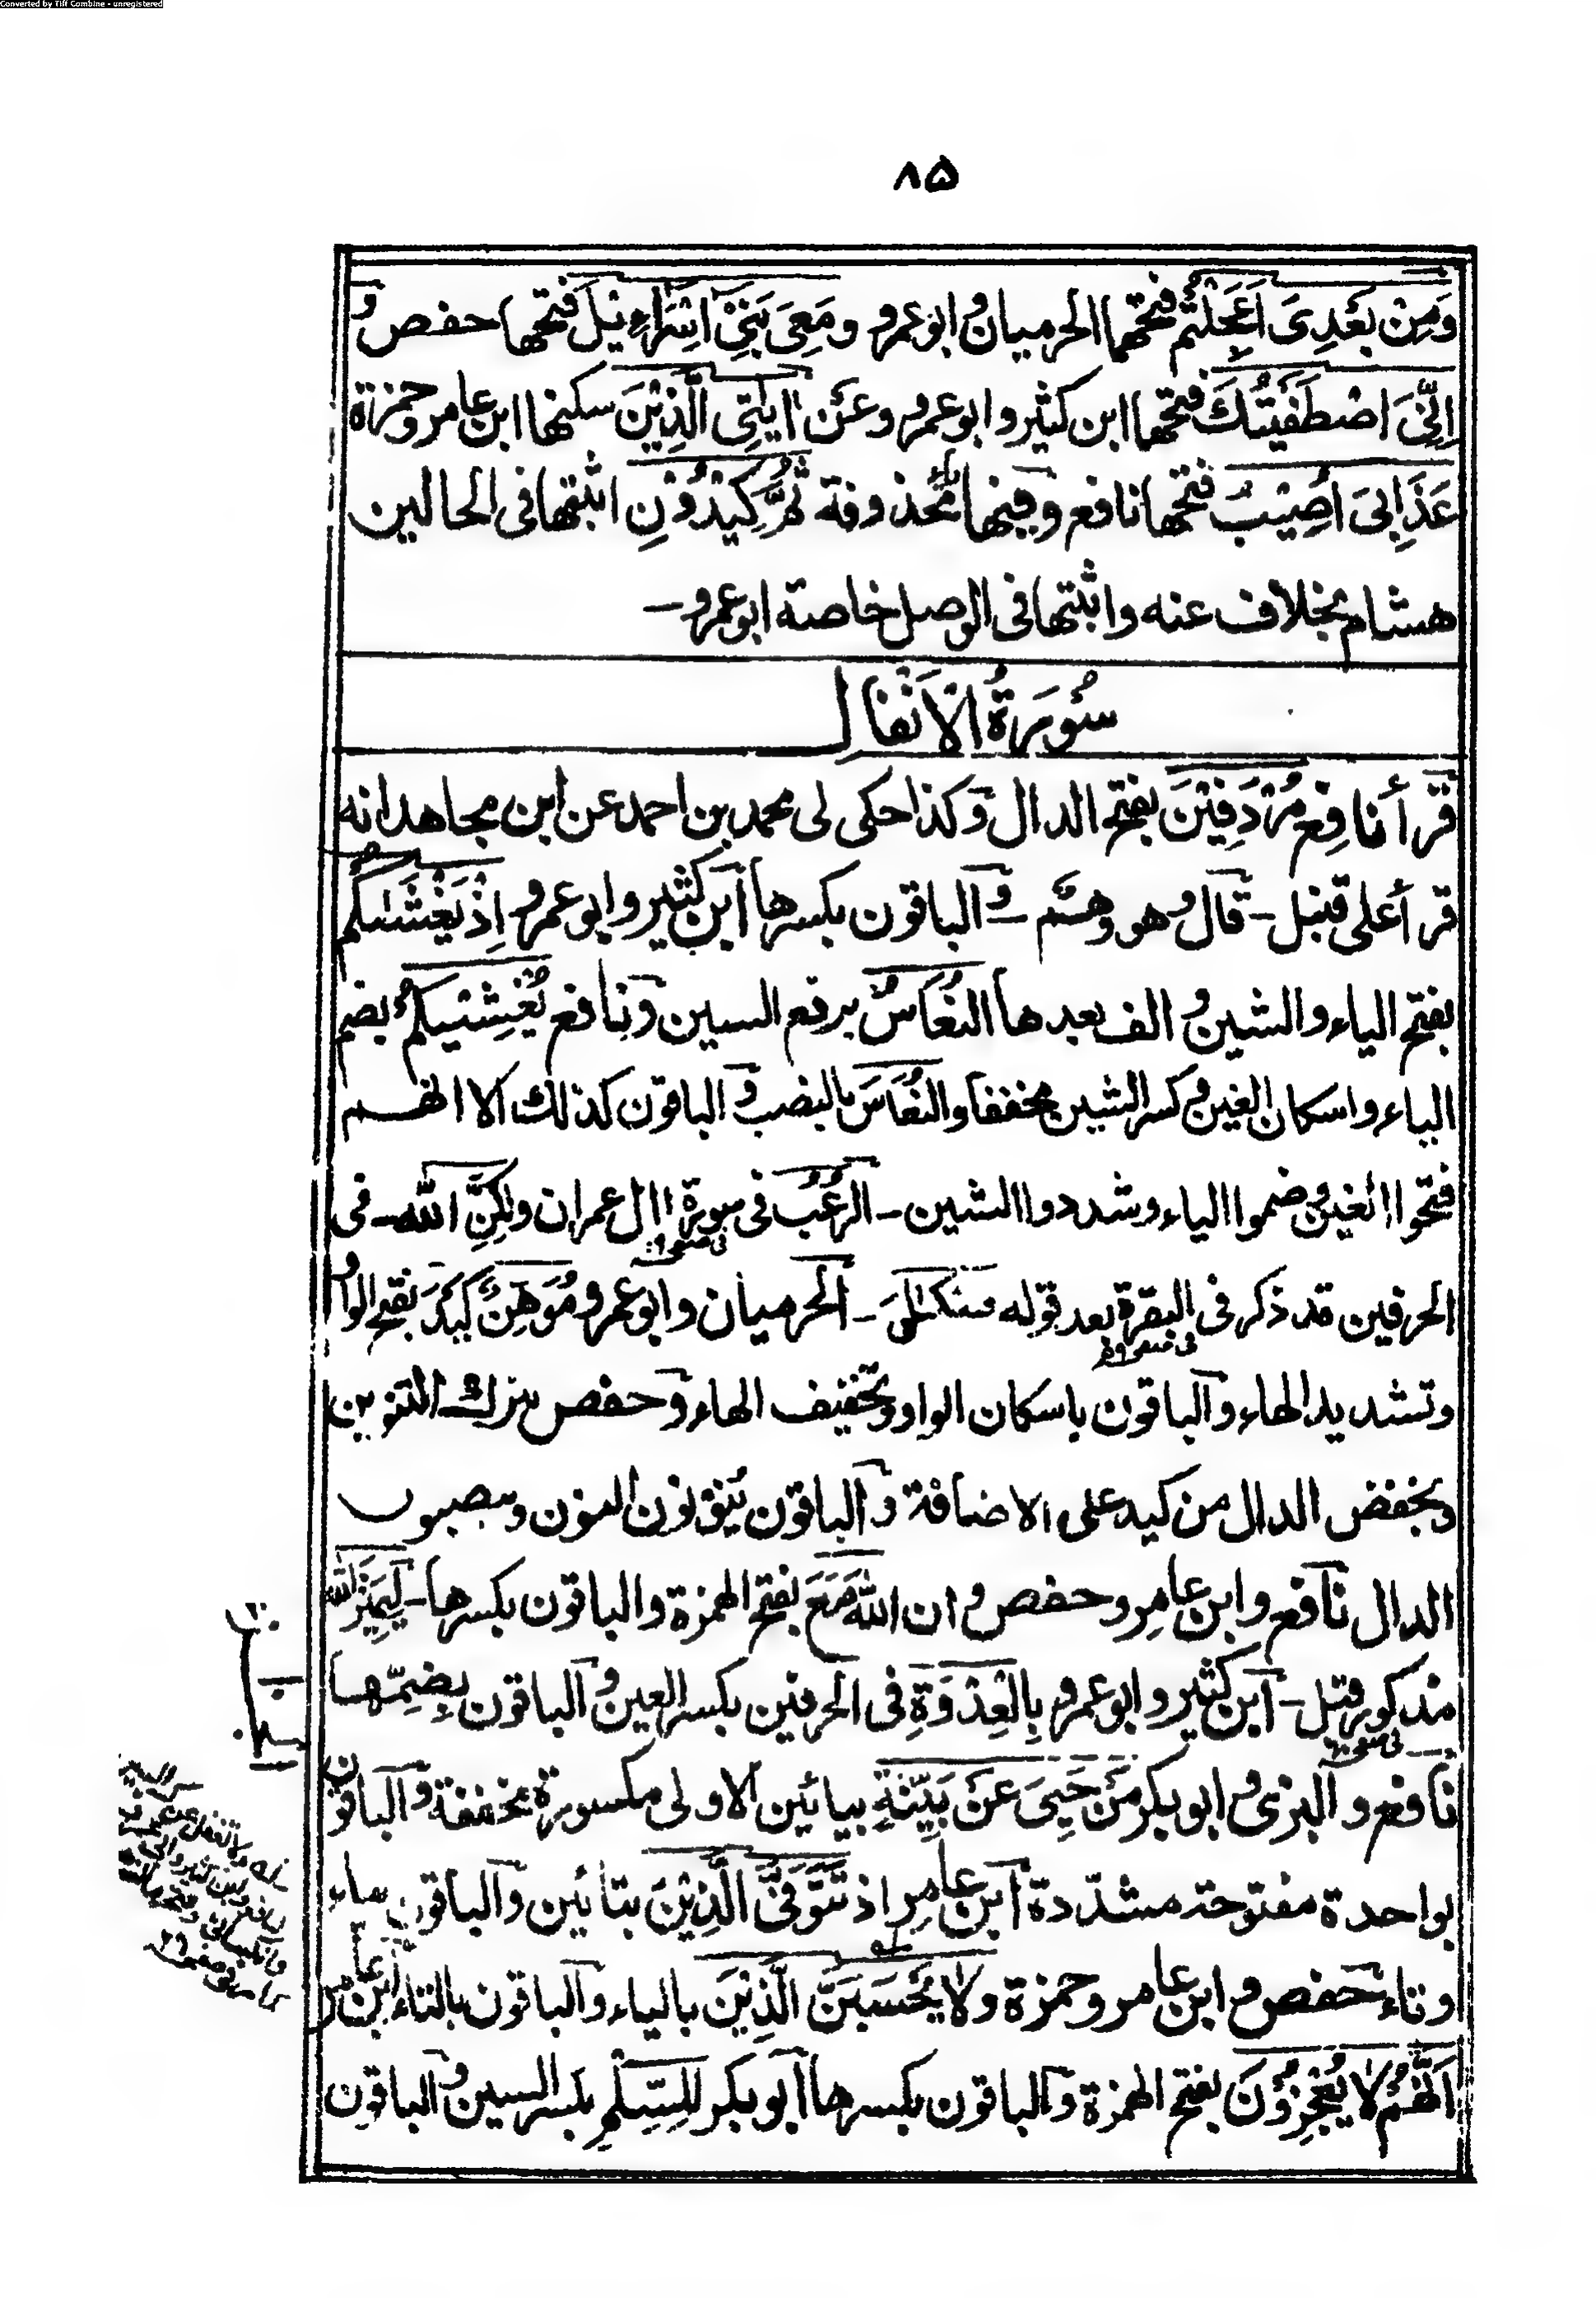 Converted by Tiff Combine - unregistered
۸۵
وَمِنْ بَعْدِىَ اَعَجَلْتُمْ فتحهما الحرميان و ابو عمرو ومَعِىَ بَنِىْ اِسْرَاءِيْلَ فتحها حفص و
اِنِّىَ اصْطَفَيْتُكَ فتحها ابن كثير و ابو عمرو وعَنْ اٰيٰتِى الَّذِيْنَ سكنها ابن عامر وحمزة
عَذَابِىَ اُصِيْبُ فتحها نافع وفيها محذوفة ثُمَّ كِيْدُوْنِ اثبتها فى الحالين
هشام بخلاف عنه واثبتها فى الوصل خاصة ابو عمرو-
سُوْرَةُ الْاَنْفَالِ
قرأ نافِع مُرْدَفِيْنَ بفتح الدال وكذا حكى لى محمد بن احمد عن ابن مجاهد انه
قرأ على قنبل- قال و هو وهم - و الباقون بكسرها ابن كثير و ابو عمرو اِذْ يَغْشٰىكُمُ
بفتح الياء و الشين و الف بعدها النُّعَاسُ برفع السين ونافع يُغْشِيْكُمُ بضم
الياء و اسكان الغين و كسر الشين مخففا والنُّعَاسَ بالنصب و الباقون كذلك الا انهم
فتحوا الغين و ضموا الياء و شددوا الشين - الرُّعُبَ فى سورة اٰل عمران ولٰكِنِ اللّٰه- فى
الحرفين قد ذكر فى البقرة بعد قوله مِيْكٰىلَ - الحرميان و ابو عمرو مُوَهِّنٌ كَيْدَ بفتح الواو
وتشديد الهاء و الباقون باسكان الواو وتخفيف الهاء و حفص بترك التنوين
و بخفض الدال من كيد على الاضافة و الباقون ينوّنون النون و ينصبون
الدال نافع و ابن عامِر و حفص و ان اللّٰه مَعَ بفتح الهمزة و الباقون بكسرها- لِيَمِيْزَ اللّٰه
مذكور قبل- ابن كثير و ابو عمرو بِالْعِدْوَةِ فى الحرفين بكسر العين و الباقون بضمِّها
نافع و البزى و ابو بكر مَنْ حَيِىَ عَنْ بَيِّنَةٍ بيائين الاولى مكسورة مخففة و الباقون
بواحدة مفتوحة مشدّدة ابن عامِر اذ تَتَوَفَّى الَّذِيْنَ بتائين و الباقون بياء
وتاء حفص و ابن عامر و حمزة ولا يَحْسَبَنَّ الَّذِيْنَ بالياء و الباقون بالتاء ابن عامر
اَنَّهُمْ لَا يُعْجِزُوْنَ بفتح الهمزة و الباقون بكسرها ابو بكر لِلسِّلْمِ بكسر السين و الباقون